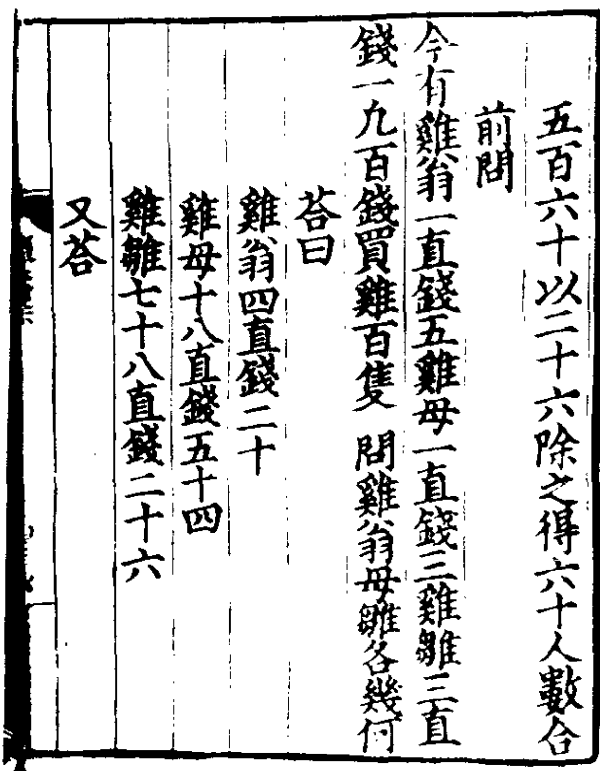 五百六十以二十六除之得六十人數合
前問
今有雞翁一直錢五雞母一直錢三雞雛三直
錢一凢百錢買雞百隻 問雞翁母雛各幾何
荅曰
雞翁四直錢二十
雞母十八直錢五十四
雞雛七十八直錢二十六
又荅